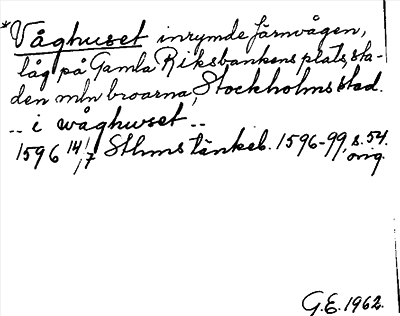 *Våghuset inrymde järnvågen,
låg på Gamla Riksbankens plats, sta-
den mln broarna, Stockholms stad.
.. i wåghuset ..
1596 14/7 Sthms tänkeb. 1596-99, s. 54.
orig.
G.E. 1962.